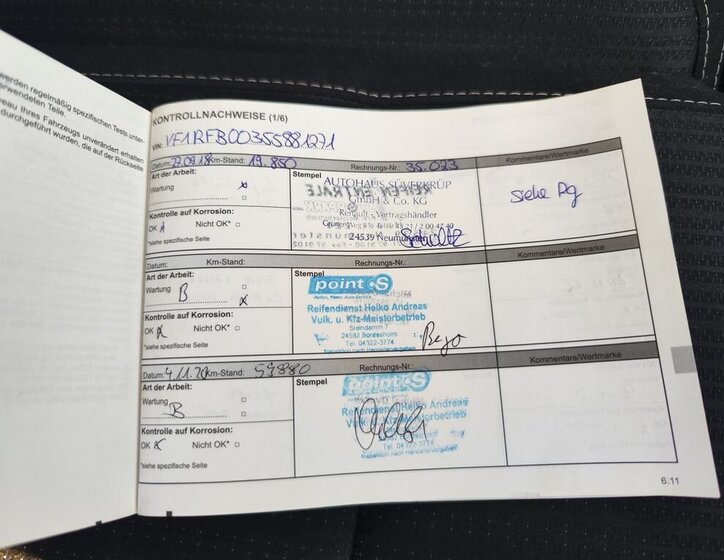 werden regelmäßig spezifischen Tests unter-
verwendeten Teile.
eau Ihres Fahrzeugs unverändert erhalten
durchgeführt wurden, die auf der Rückseite
KONTROLLNACHWEISE (1/6)
VIN: VF1RFB00355881271
Datum: 27.09.18 Km-Stand: 19.850 Rechnungs-Nr.: 35.023 Kommentare/Wertmarke
Art der Arbeit: Stempel
Wartung x
AUTOHAUS SÜVERKRÜP
GmbH & Co. KG
Renault - Vertragshändler
24539 Neumünster
siehe
Kontrolle auf Korrosion:
OK x Nicht OK* □
*siehe spezifische Seite
Datum: Km-Stand: Rechnungs-Nr.: Kommentare/Wertmarke
Art der Arbeit: Stempel
Wartung □
B x
point S
Reifen, Räder, Auto-Service
Reifendienst Heiko Andreas
Vulk. u. Kfz-Meisterbetrieb
Steindamm 7
24582 Bordesholm
Tel. 04322-3774
Inspektion nach Herstellervorgaben
Kontrolle auf Korrosion:
OK x Nicht OK* □
*siehe spezifische Seite
Datum: 4.11.20 Km-Stand: 59880 Rechnungs-Nr.: Kommentare/Wertmarke
Art der Arbeit: Stempel
Wartung □
B □
point S
Reifendienst Heiko Andreas
Vulk. u. Kfz-Meisterbetrieb
Tel. 04322-3774
Inspektion nach Herstellervorgaben
Kontrolle auf Korrosion:
OK x Nicht OK* □
*siehe spezifische Seite
6.11